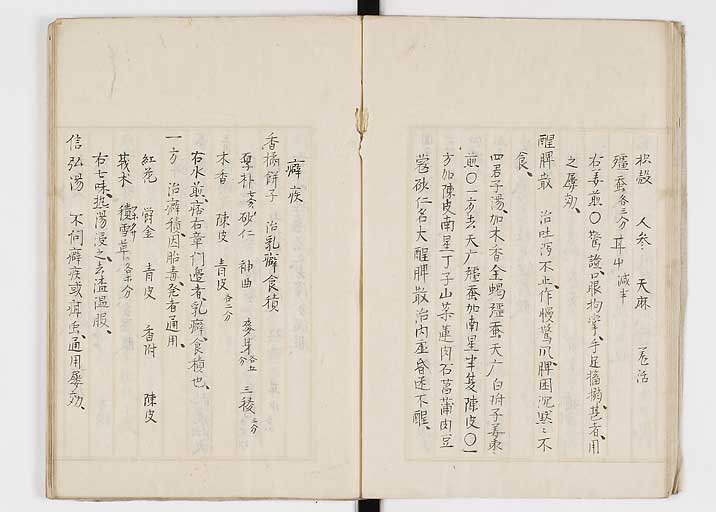 枳殼 人参 天麻 羗活
殭蚕各三分 甘中減半
右姜煎〇驚證口眼拘掌手足搐搦甚者用
之屡効
醒脾散 治吐瀉不止作慢驚風脾困沉黙ミ不
食
四君子湯加木香全蝎殭蚕天广白附子姜枣
煎〇一方去天广殭蚕加南星半隻陳皮〇一
方加陳皮南星丁子山茱莲肉石菖蒲肉豆
蔲砂仁名大醒脾散治内虚昏迷不醒
癖疾
香橘餅子 治乳癖食積
厚朴 砂仁 神曲 麦芽 三稜
木香 陳皮 青皮
右水煎痞右章门邉者乳癖食積也
一方 治癖積因胎毒発者通用
紅花 欝金 青皮 香附 陳皮
莪术 各等分
右七味热湯浸之去渣温服
信弘湯 不问癖疾或疳虫通用屡効